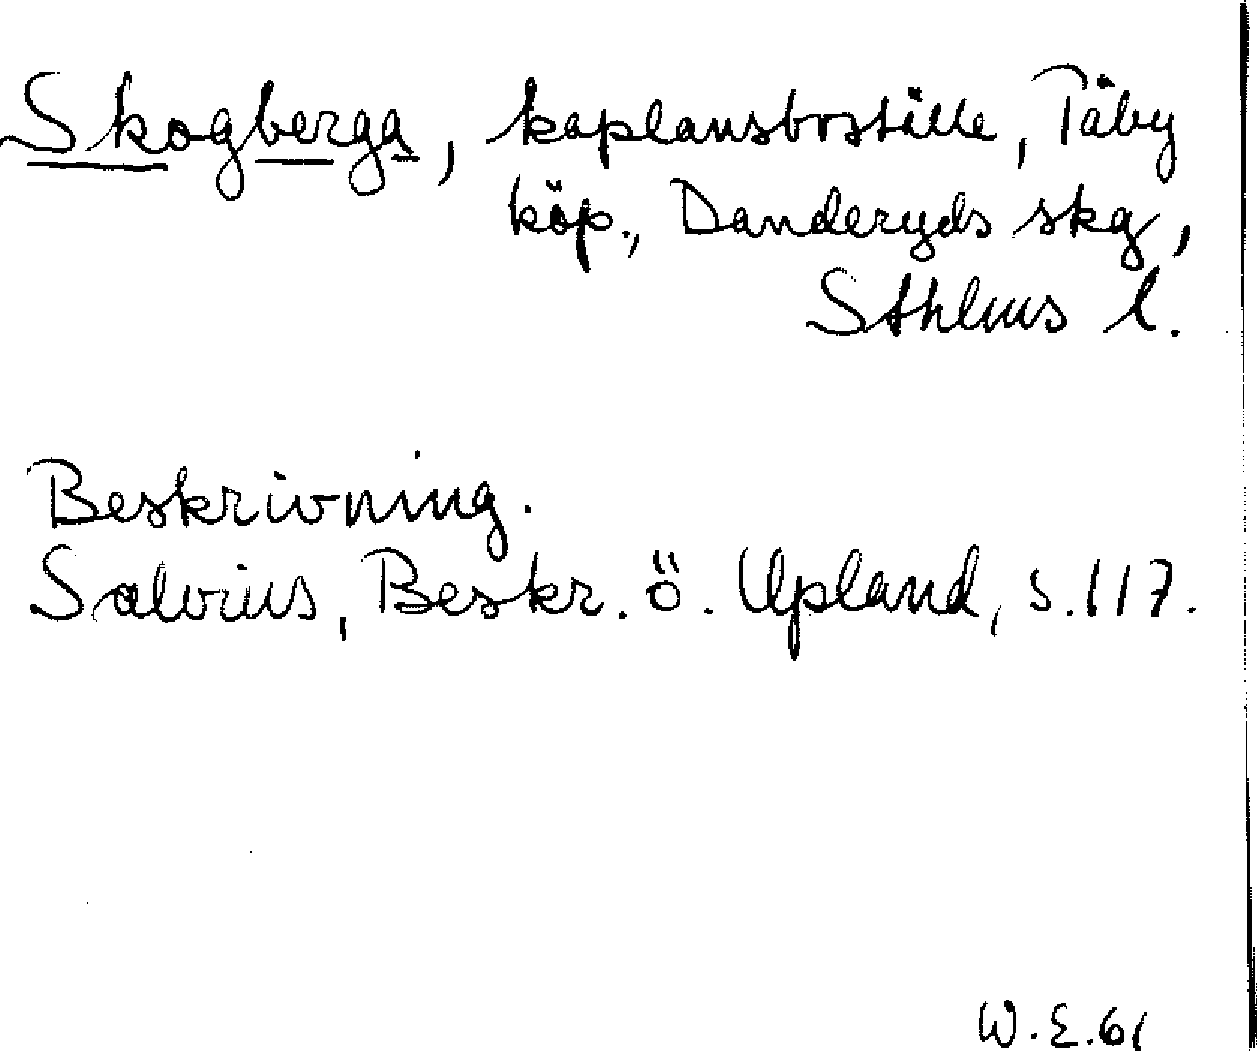 Skogberga, kaplansboställe, Täby
köp., Danderyds skg,
Sthlms l.
Beskrivning.
Salvius, Beskr. ö. Upland, s. 117.
W.E. 61